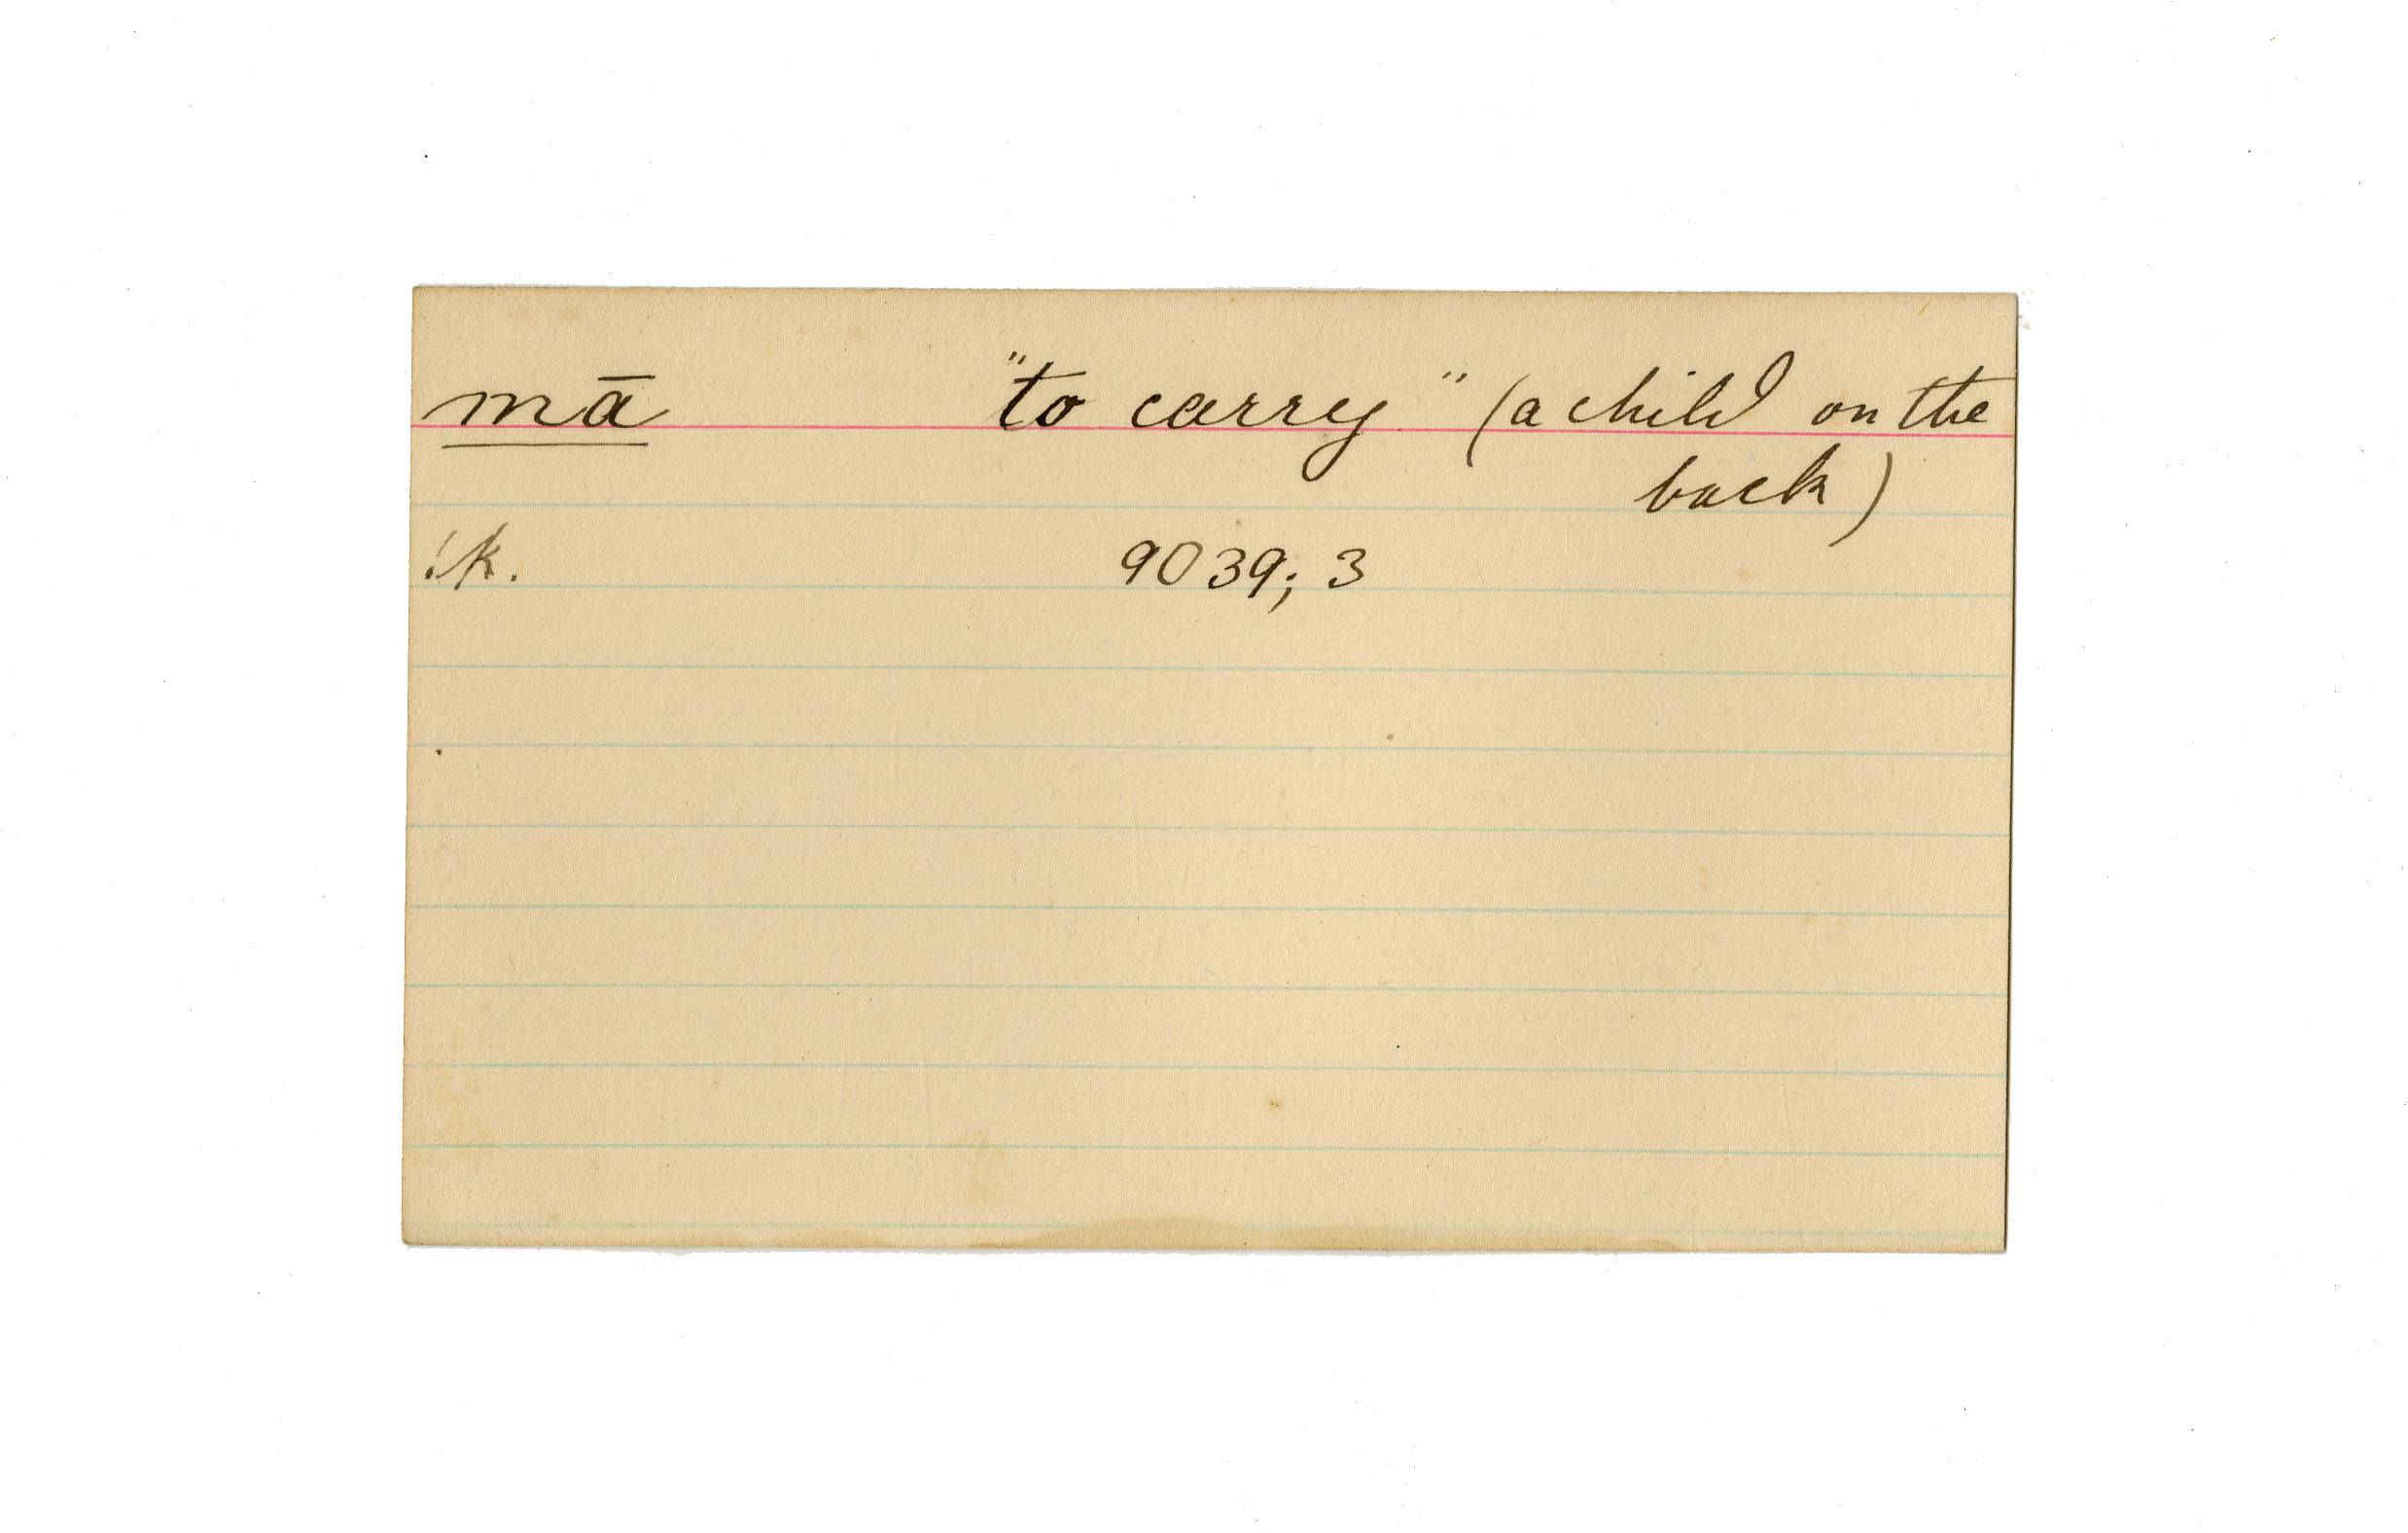 mā "to carry" (a child on the
back)
!k. 9039; 3